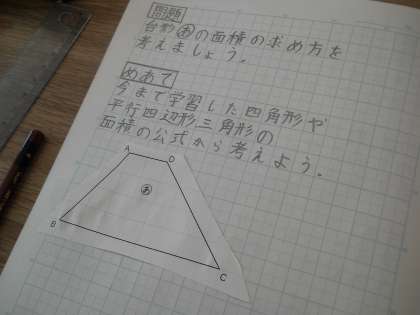 問題
台形あの面積の求め方を
考えましょう。
めあて
今まで学習した四角形や
平行四辺形、三角形の
面積の公式から考えよう。
A D
あ
B
C